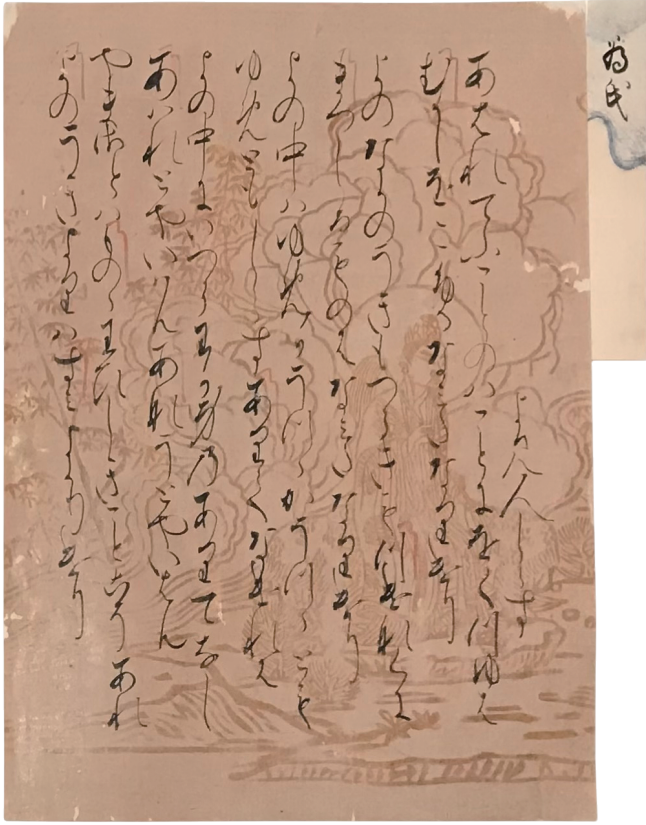 為氏
よみ人しらす
あはれてふことのはことにをくつゆは
むかしをこふるなみたなりけり
よのなかのうきもつらきもつけなくに
まつしるものはなみたなりけり
よの中はゆめかうつゝかうつゝとも
ゆめともしらすありてなけれは
よの中にいつらわか身のありてなし
あはれとやいはんあなうとやいはん
やまさとはものゝわひしきことこそあれ
よのうきよりはすみよかりけり